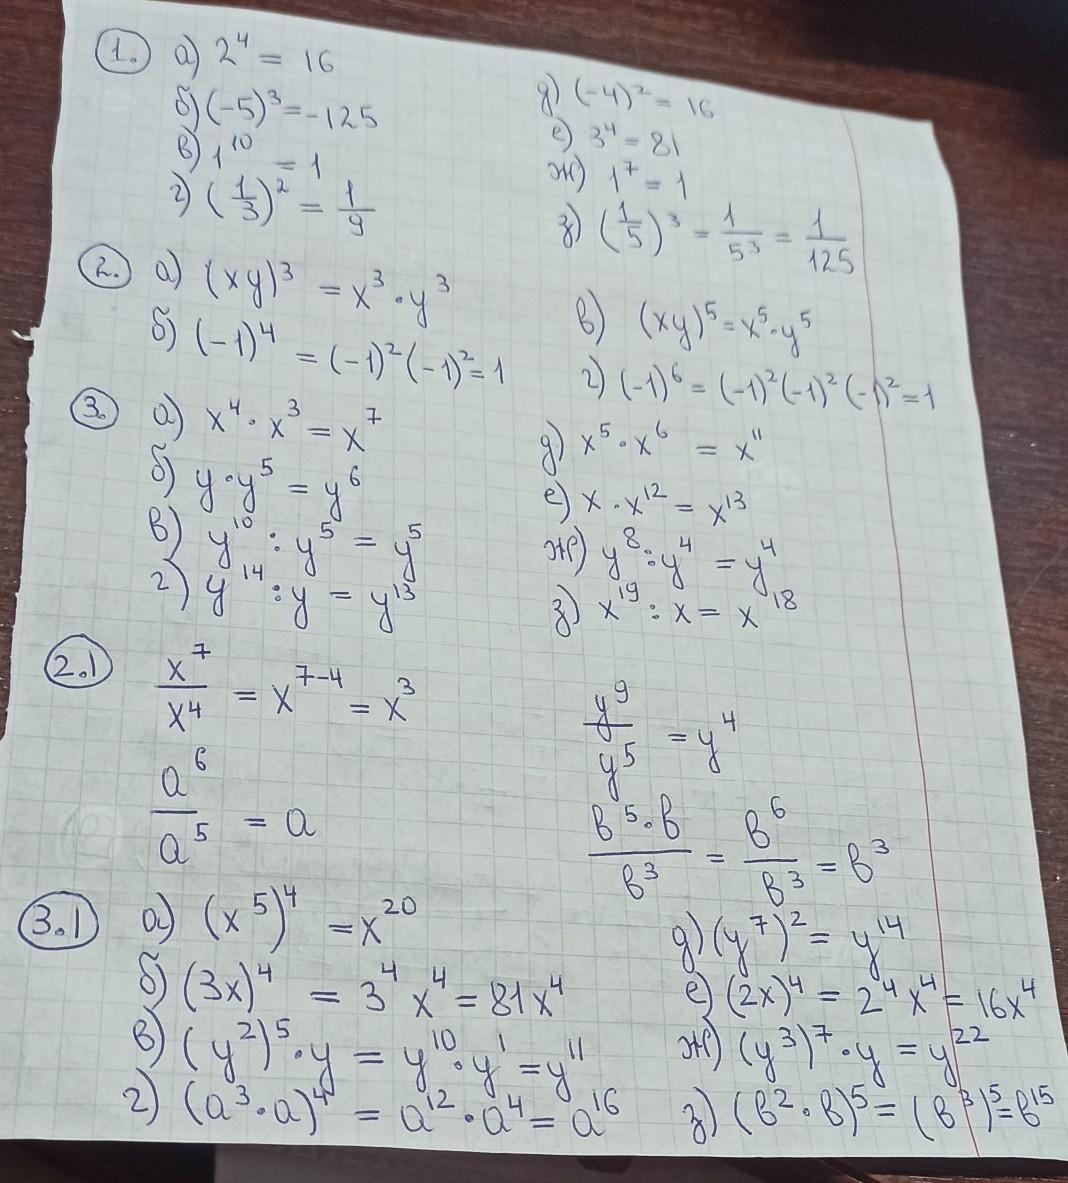 1. а) 2⁴ = 16
б) (-5)³ = -125
в) 1¹⁰ = 1
г) (1/3)² = 1/9
д) (-4)² = 16
е) 3⁴ = 81
ж) 1⁷ = 1
з) (1/5)³ = 1/5³ = 1/125
2. а) (xy)³ = x³·y³
б) (-1)⁴ = (-1)²(-1)² = 1
в) (xy)⁵ = x⁵·y⁵
г) (-1)⁶ = (-1)²(-1)²(-1)² = 1
3. а) x⁴·x³ = x⁷
б) y·y⁵ = y⁶
в) y¹⁰ : y⁵ = y⁵
г) y¹⁴ : y = y¹³
д) x⁵·x⁶ = x¹¹
е) x·x¹² = x¹³
ж) y⁸ : y⁴ = y⁴
з) x¹⁹ : x = x¹⁸
2.1 x⁷/x⁴ = x⁷⁻⁴ = x³
a⁶/a⁵ = a
y⁹/y⁵ = y⁴
в⁵·в/в³ = в⁶/в³ = в³
3.1 а) (x⁵)⁴ = x²⁰
б) (3x)⁴ = 3⁴x⁴ = 81x⁴
в) (y²)⁵·y = y¹⁰·y¹ = y¹¹
г) (a³·a)⁴ = a¹²·a⁴ = a¹⁶
д) (y⁷)² = y¹⁴
е) (2x)⁴ = 2⁴x⁴ = 16x⁴
ж) (y³)⁷·y = y²²
з) (в²·в)⁵ = (в³)⁵ = в¹⁵